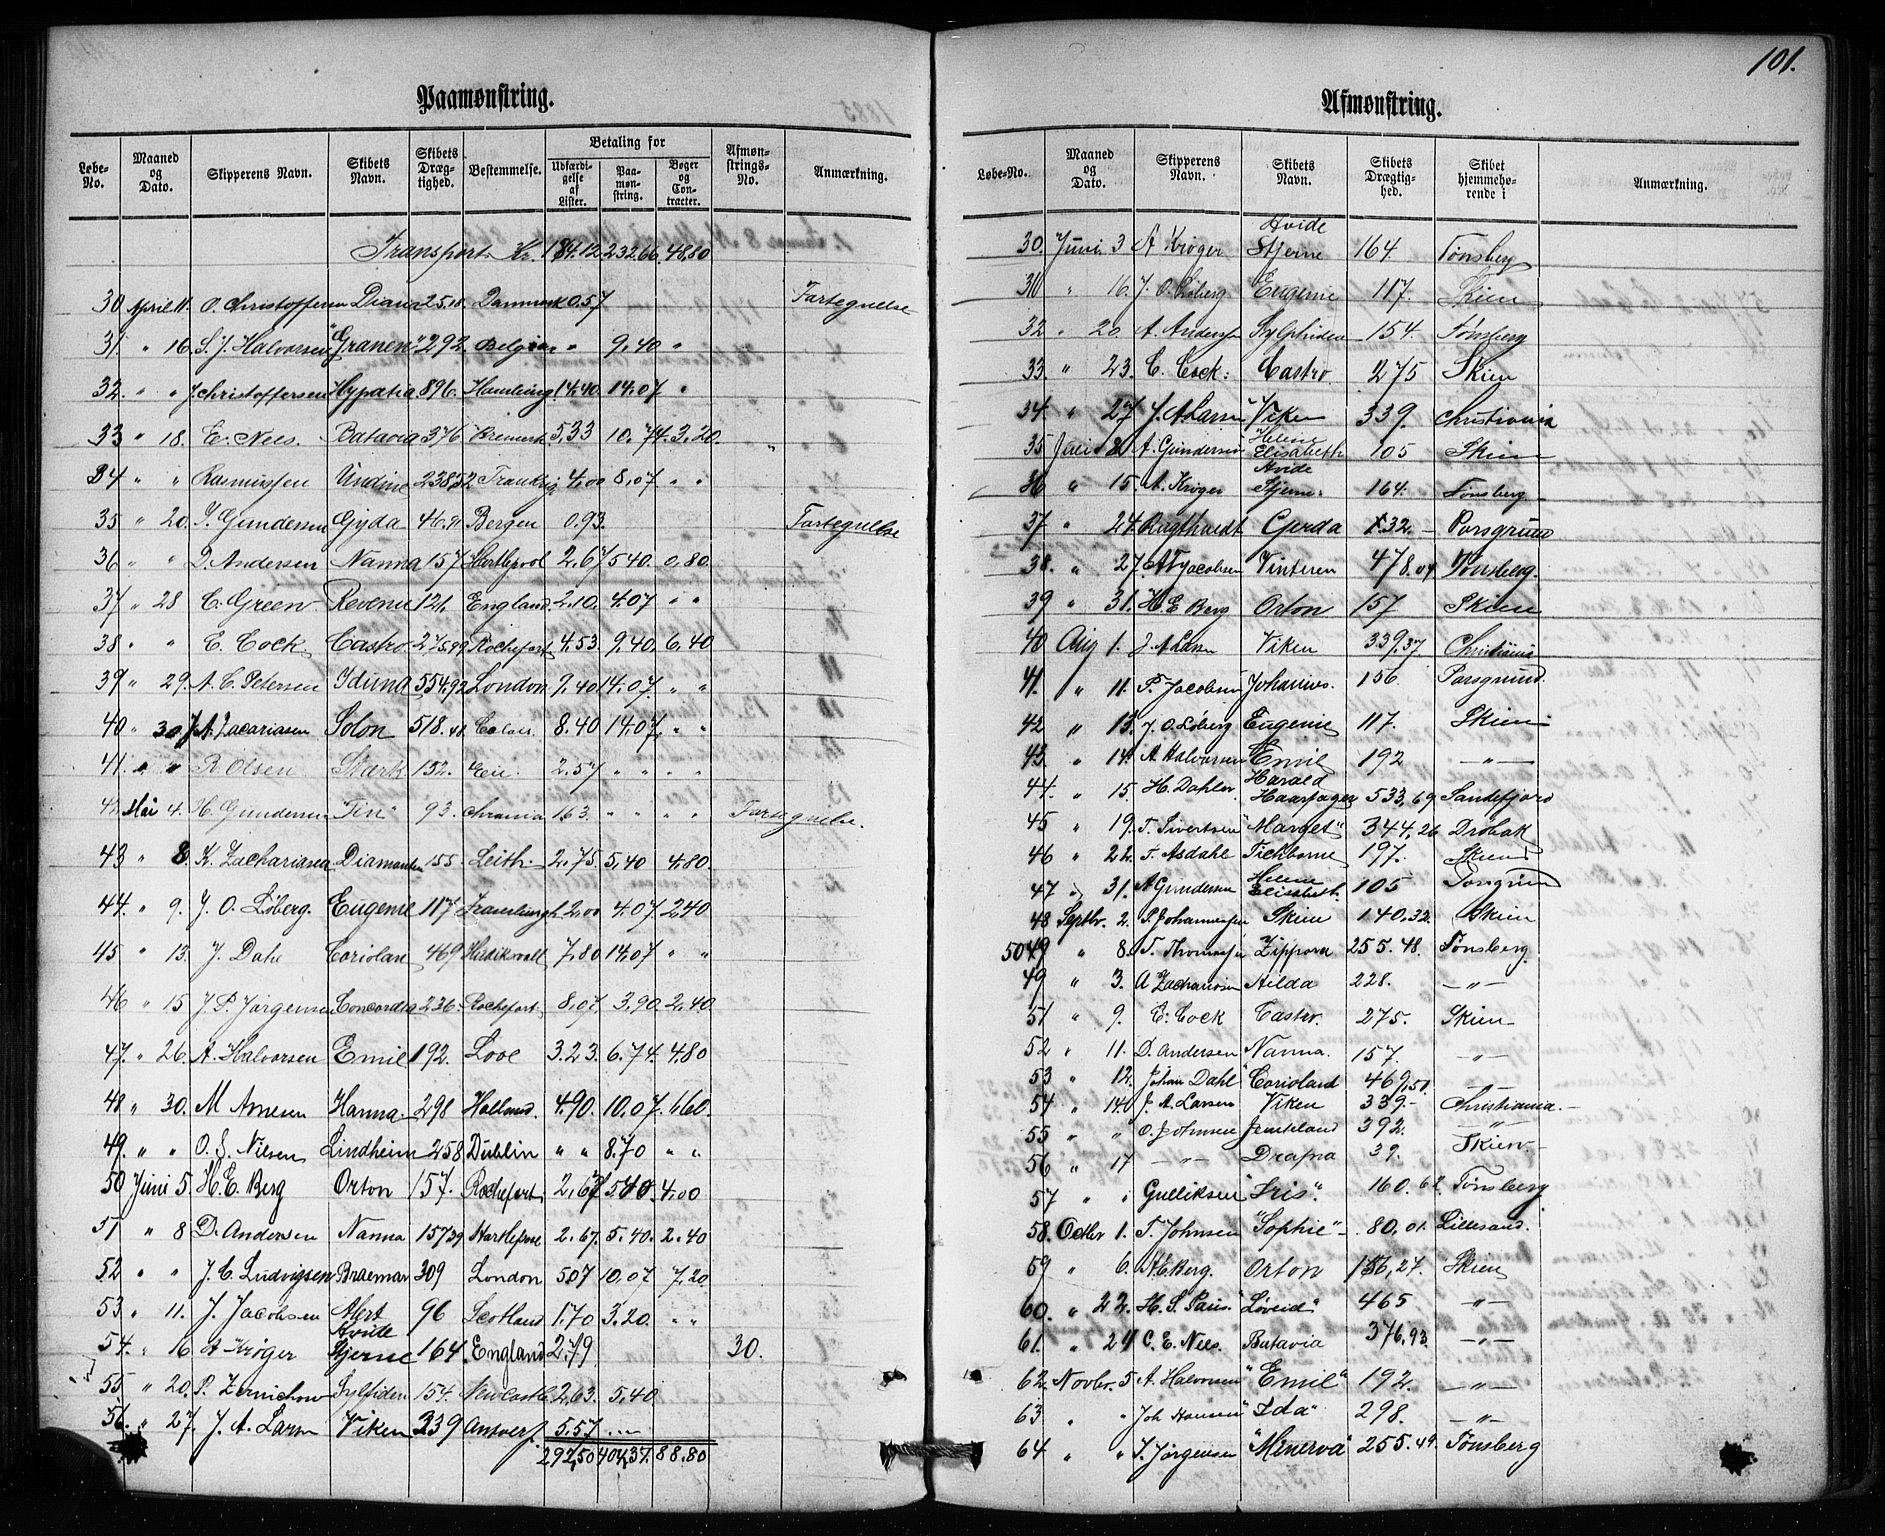 101.
Paamønstring.
1885
Løbe-No. Maaned og Dato. Skipperens Navn. Skibets Navn. Skibets Dræg-tighed. Bestemmelse. Betaling for Udfærdi-gelse af Lister. Paa-møn-string. Bøger og Con-tracter. Afmøn-strings-No. Anmærkning.
Transport Kr. 184.12 232.66 48.80
30 April 11. O. Christoffersen Diana 25.18 Danmark 0.57 Fortegnelse
31. " 16. S. J. Halvorsen "Granen" 292. Belgien " 9,40 "
32. " " J. Christoffersen Hypatia 896. Hamburg 14.40. 14,07 "
33 " 18. E. Nees. Batavia 376 5,33 10,74. 3,20.
34 " " Rasmussen Undine 238,52 4,00 8,07 " "
35 " 20. Gundersen Gyda 46.91 Bergen 0.93. Fortegnelse
36 " " D. Andersen Nanna 157 Hartlepool 2.67 5.40 0,80.
37 " 28 C. Green Revenu 121. England 2,10. 4,07 " "
38 " " E. Cock Castro 275,99 Rochefort 4,53 9,40 6,40
39 " 29. A. C. Petersen Iduna 554,92 London 9,40 14.07 " "
40 " 30. J. A. Zacariasen Solon 518.48 Calais 8.40 14,07. " "
41. " " R. Olsen Stærk 152. 2.57 " " " "
42 Mai 4. H. Gundersen Fin" 93. Chrania 1.63. " " " " Fortegnelse.
43 " 8. K. Zachariasen Diamanten 155. Leith. 2.75 5,40 4.80
44. " 9. J. O. Løberg. Eugenie 117 2,00 4.07. 2,40
45 " 13. J. Dahl Coriolan 469 Hudiksvall 7,80 14,07 " "
46 " 15 J. P. Jørgensen Concordia 236. Rochefort 8,07 3,90 2,40
47. " 26. A. Halvorsen Emil 192. Love 3.23. 6.74. 4.80
48 " 30. M Arnesen Hanna. 298 Holland. 4.90. 10.07. 6.60
49. " " O. S. Nilsen Lindheim 258 Dublin " " 8.70 " "
50 Juni 5. H. E. Berg Orton 157. Rochefort 2,67 5,40 4,00
51 " 8 D. Andersen Nanna 157 39 Hartlepool 2,67. 5,40. 2,40
52 " " J. C. Ludvigsen Braemar 309 London 5,07 10,07 7,20.
53 " 11. J. Jacobsen Alert 96 Scotland 1.70 3,20. " "
54. " 16 A Krøger Hvide Stjerne 164. England 2.79 30.
55 " 20. P. Sylfiden 154. Newcastle 2,63. 5,40
56. " 27. J. A. Larsen Viken 339 Antverp. 5.57
292,50 404,37. 88.80
Afmønstring.
Løbe-No. Maaned og Dato. Skipperens Navn. Skibets Navn. Skibets Drægtig-hed. Skibet hjemmehø-rende i Anmærkning.
30. Juni 3 A Krøger Hvide Stjerne 164 Tønsberg
31 " 16. J. O. Løberg Eugenie 117. Skien
32 " 20. A. Andersen Sylphiden 154. Tønsberg
33 " 23. C. Cock: Castro 275 Skien
34 " 27 J. A. Larsen Viken 339. Christiania
35 Juli 8. A. Gundersen Helene Elisabeth 105 Skien
36 " 15. A. Krøger Hvide Stjerne. 164. Tønsberg
37 " 24. Rugthvedt Gerda 132 - Porsgrund
38. " 27. A. T. Jacobsen Vinteren 478.04 Tønsberg.
39 " 31. H. E Berg Orton 157 Skien
40 Aug 1. J. A Larsen Viken 339,37. Christiania
41. " 11. P. Jacobsen Johannes. 156 Porsgrund.
42 " 13. J. O. Løberg Eugenie 117. Skien
43. " 14. A Halvorsen Emil 192 —"—
44. " 15. H. Dahler. Harald Haarfager 533,69 Sandefjord
45 " 19. T. Sivertsen "Marget" 344,26 Drøbak
46 " 22. T. Asdahl Tichborne 197. Skien
47 " 31. A Gundersen Helene Elisabeth. 105 Porsgrund
48 Septbr. 2. P. Johannesen Skien 140.32. Skien
50 49 " 8. T. Thomassen Zippora 255.48. Tønsberg.
49 " 3. A Zachariasen Hilda 228. —"—
51 " 9. E. Cock Castro. 275. Skien
52 " 11. D. Andersen Nanna. 157. —"—
53 " 12. Johan Dahl "Corioland 469,51 —"—
54 " 14. J. A. Larsen Viken 339.- Christiania.
55 " " O. Johnsen 392. —"—
56 " 17 —"— Drafna 39. Skien
57 " " Gulliksen "Iris". 160.62. Tønsberg
58. Octbr 1. T. Johnsen "Sophie" 80,01. Lillesand.
59 " 6. H. E. Berg. Orton 156,27. Skien
60. " 22. H. S. Paus. "Løveid" 465 —"—
61. " 24 C. E. Nees. Batavia 376,93. —"—
62. Novbr. 5. A. Halvorsen "Emil" 192. —"—
63 " " Joh Hansen "Ida" 298. —"—
64 " " Jørgensen "Minerva" 255.49. Tønsberg